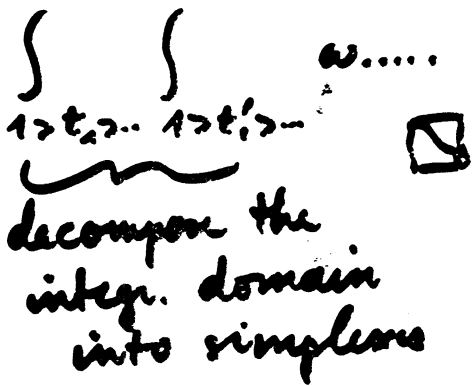 ∫ ∫ ω.....
1>t₁>.. 1>t₁'>...
decompose the
integr. domain
into simplexes